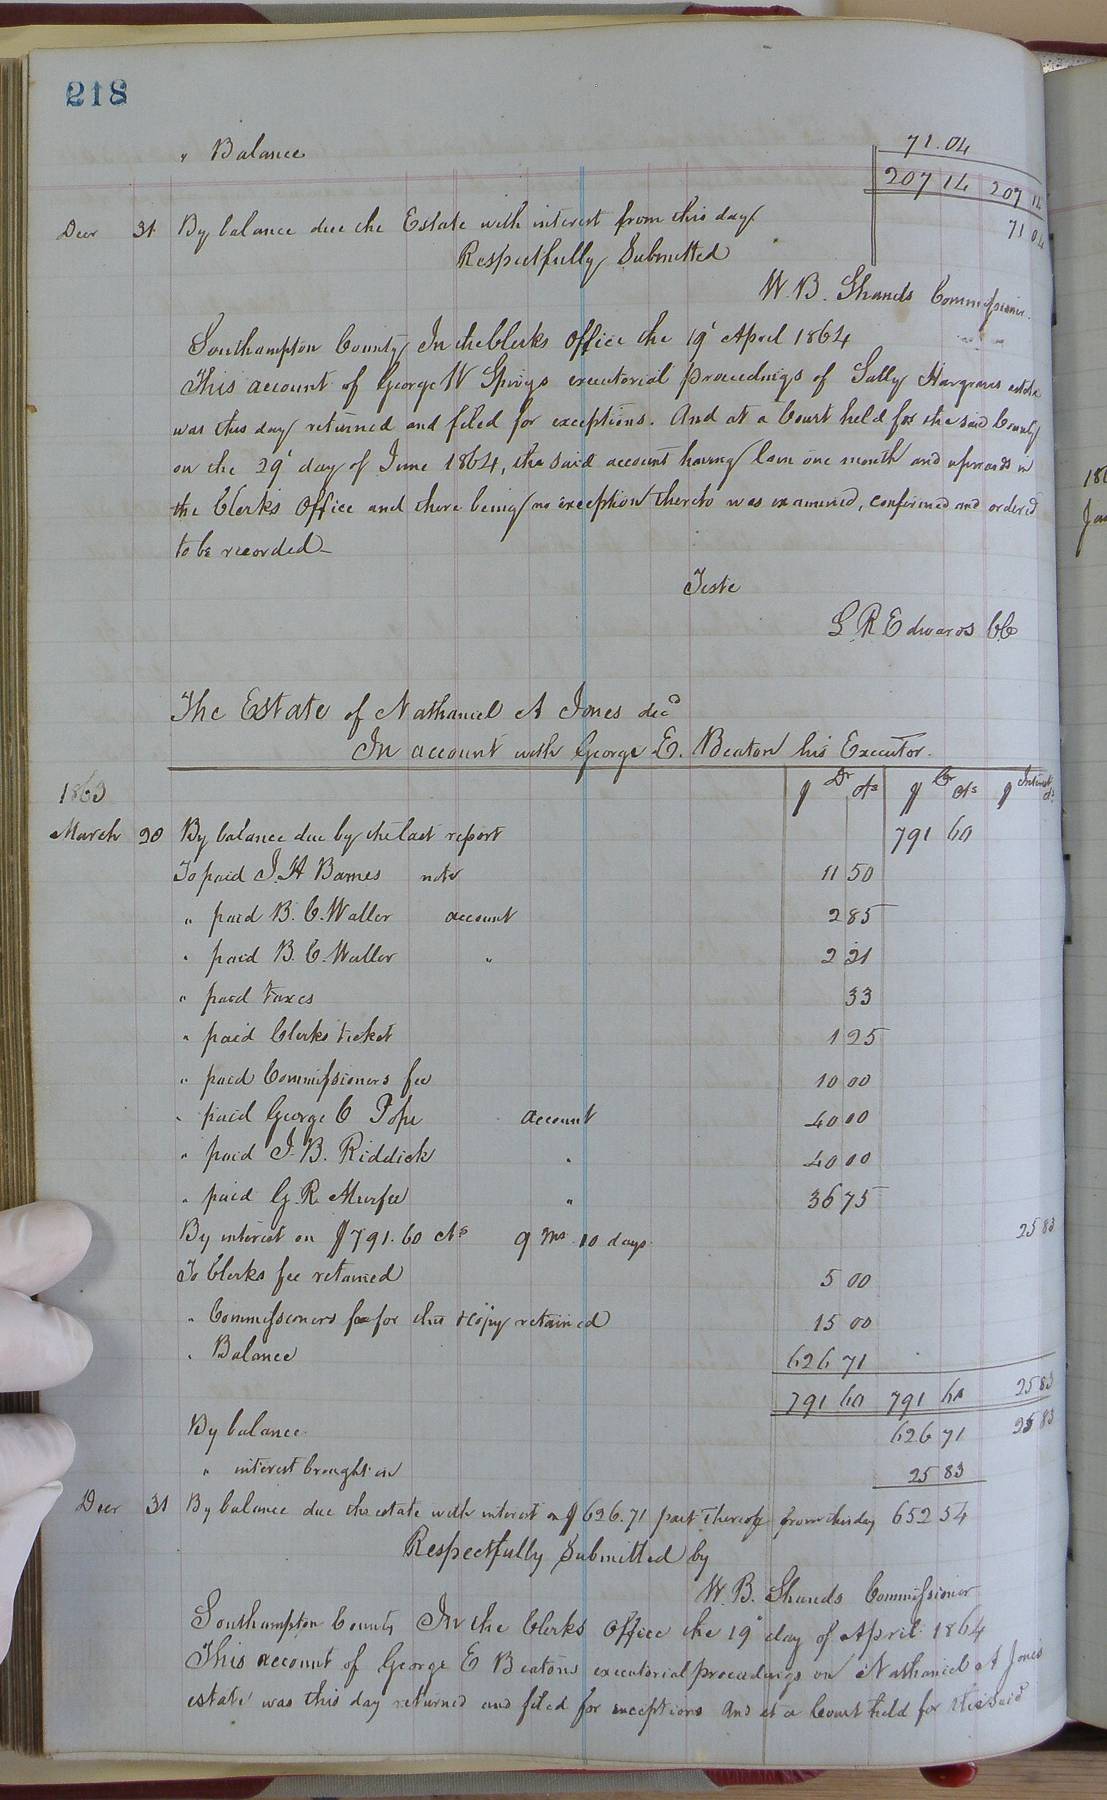 218
" Balance 71.04
207 14 207 14
Decr 31 By balance due the Estate with interest from this day 71 04
Respectfully Submitted
W. B. Shands Commissioner
Southampton County In the Clerks Office the 19' April 1864
This account of George W Sprigs executorial proceedings of Sally Hargraves estate
was this day returned and filed for exceptions. And at a Court held for the said County
on the 29' day of June 1864, the said account having lain one month and upwards in
the Clerks Office and there being no exception thereto was examined, confirmed and ordered
to be recorded
Teste
L R Edwards CC
The Estate of Nathaniel A Jones decd
In account with George E. Beaton his Executor.
1863 $ Dr cts $ Cr cts $ Interest cts
March 20 By balance due by the last report 791 60
To paid J. H Barnes note 11 50
" paid B. C. Waller account 2 85
" paid B. C. Waller " 2 21
" paid taxes 33
" paid Clerks ticket 1 25
" paid Commissioners fee 10 00
" paid George C Pope account 40 00
" paid J. B. Riddick " 40 00
" paid G. R. Murfee " 36 75
By interest on $791.60 cts 9 ms 10 days 25 83
To Clerks fee retained 5 00
" Commissioners fee for this & copy retained 15 00
" Balance 626 71
791 60 791 60 25 83
By balance 626 71 25 83
" interest brought in 25 83
Decr 31 By balance due the estate with interest on $626.71 part thereof from this day 652 54
Respectfully Submitted by
W. B. Shands Commissioner
Southampton County In the Clerks Office the 19' day of April 1864
This account of George E Beatons executorial proceedings on Nathaniel A Jones
estate was this day returned and filed for exceptions And at a Court held for the said